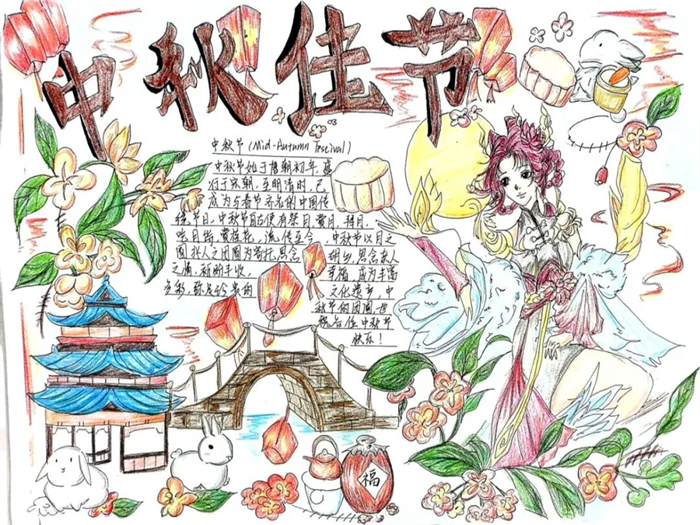 中秋佳节
中秋节 (Mid-Autumn Festival)
中秋节始于唐朝初年,盛
行于宋朝,至明清时,已
成为与春节齐名的中国传
统节日,中秋节自古便有祭月、赏月、拜月、
吃月饼、赏桂花、流传至今、中秋节以月之
圆兆人之团圆为寄托思念故乡,思念亲人
之情,祈盼丰收、幸福,成为丰富
多彩,弥足珍贵的文化遗产,中
秋节的团圆,世
祝各位中秋节
快乐!
福